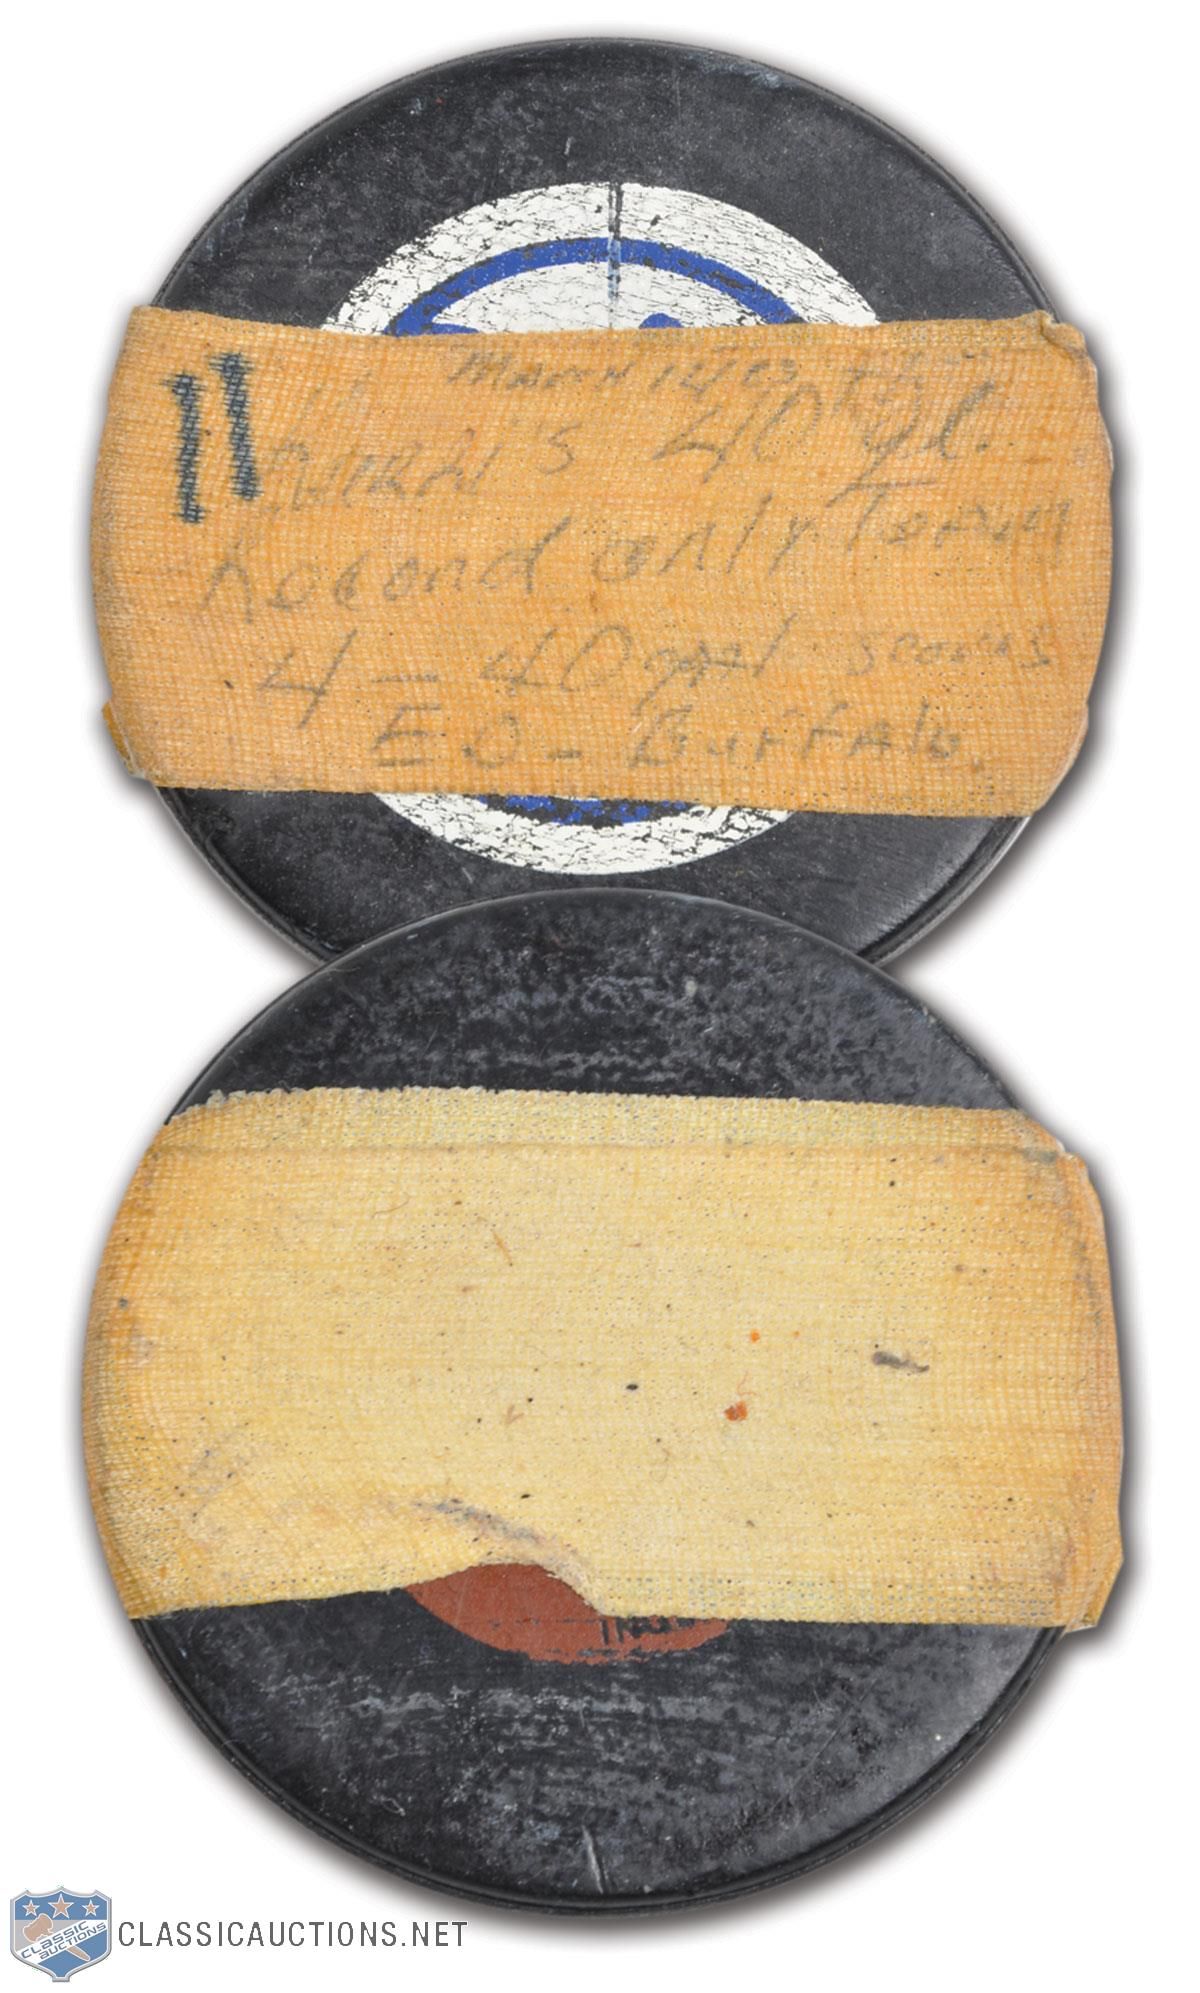 11
March 12/83
KURRI'S 40 gl.
Record only Team
4 - 40 goal scorers
ED - Buffalo
CLASSIC
AUCTIONS
CLASSICAUCTIONS.NET